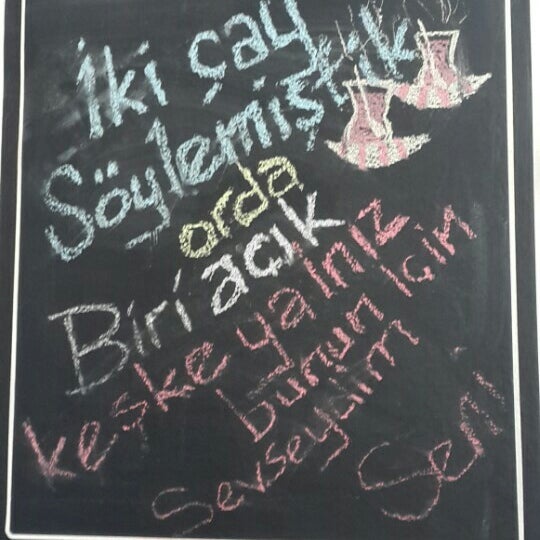 İki çay
Söylemiştik
orda
Biri açık
keşke yalnız
bunun İçin
Sevseydim
Seni